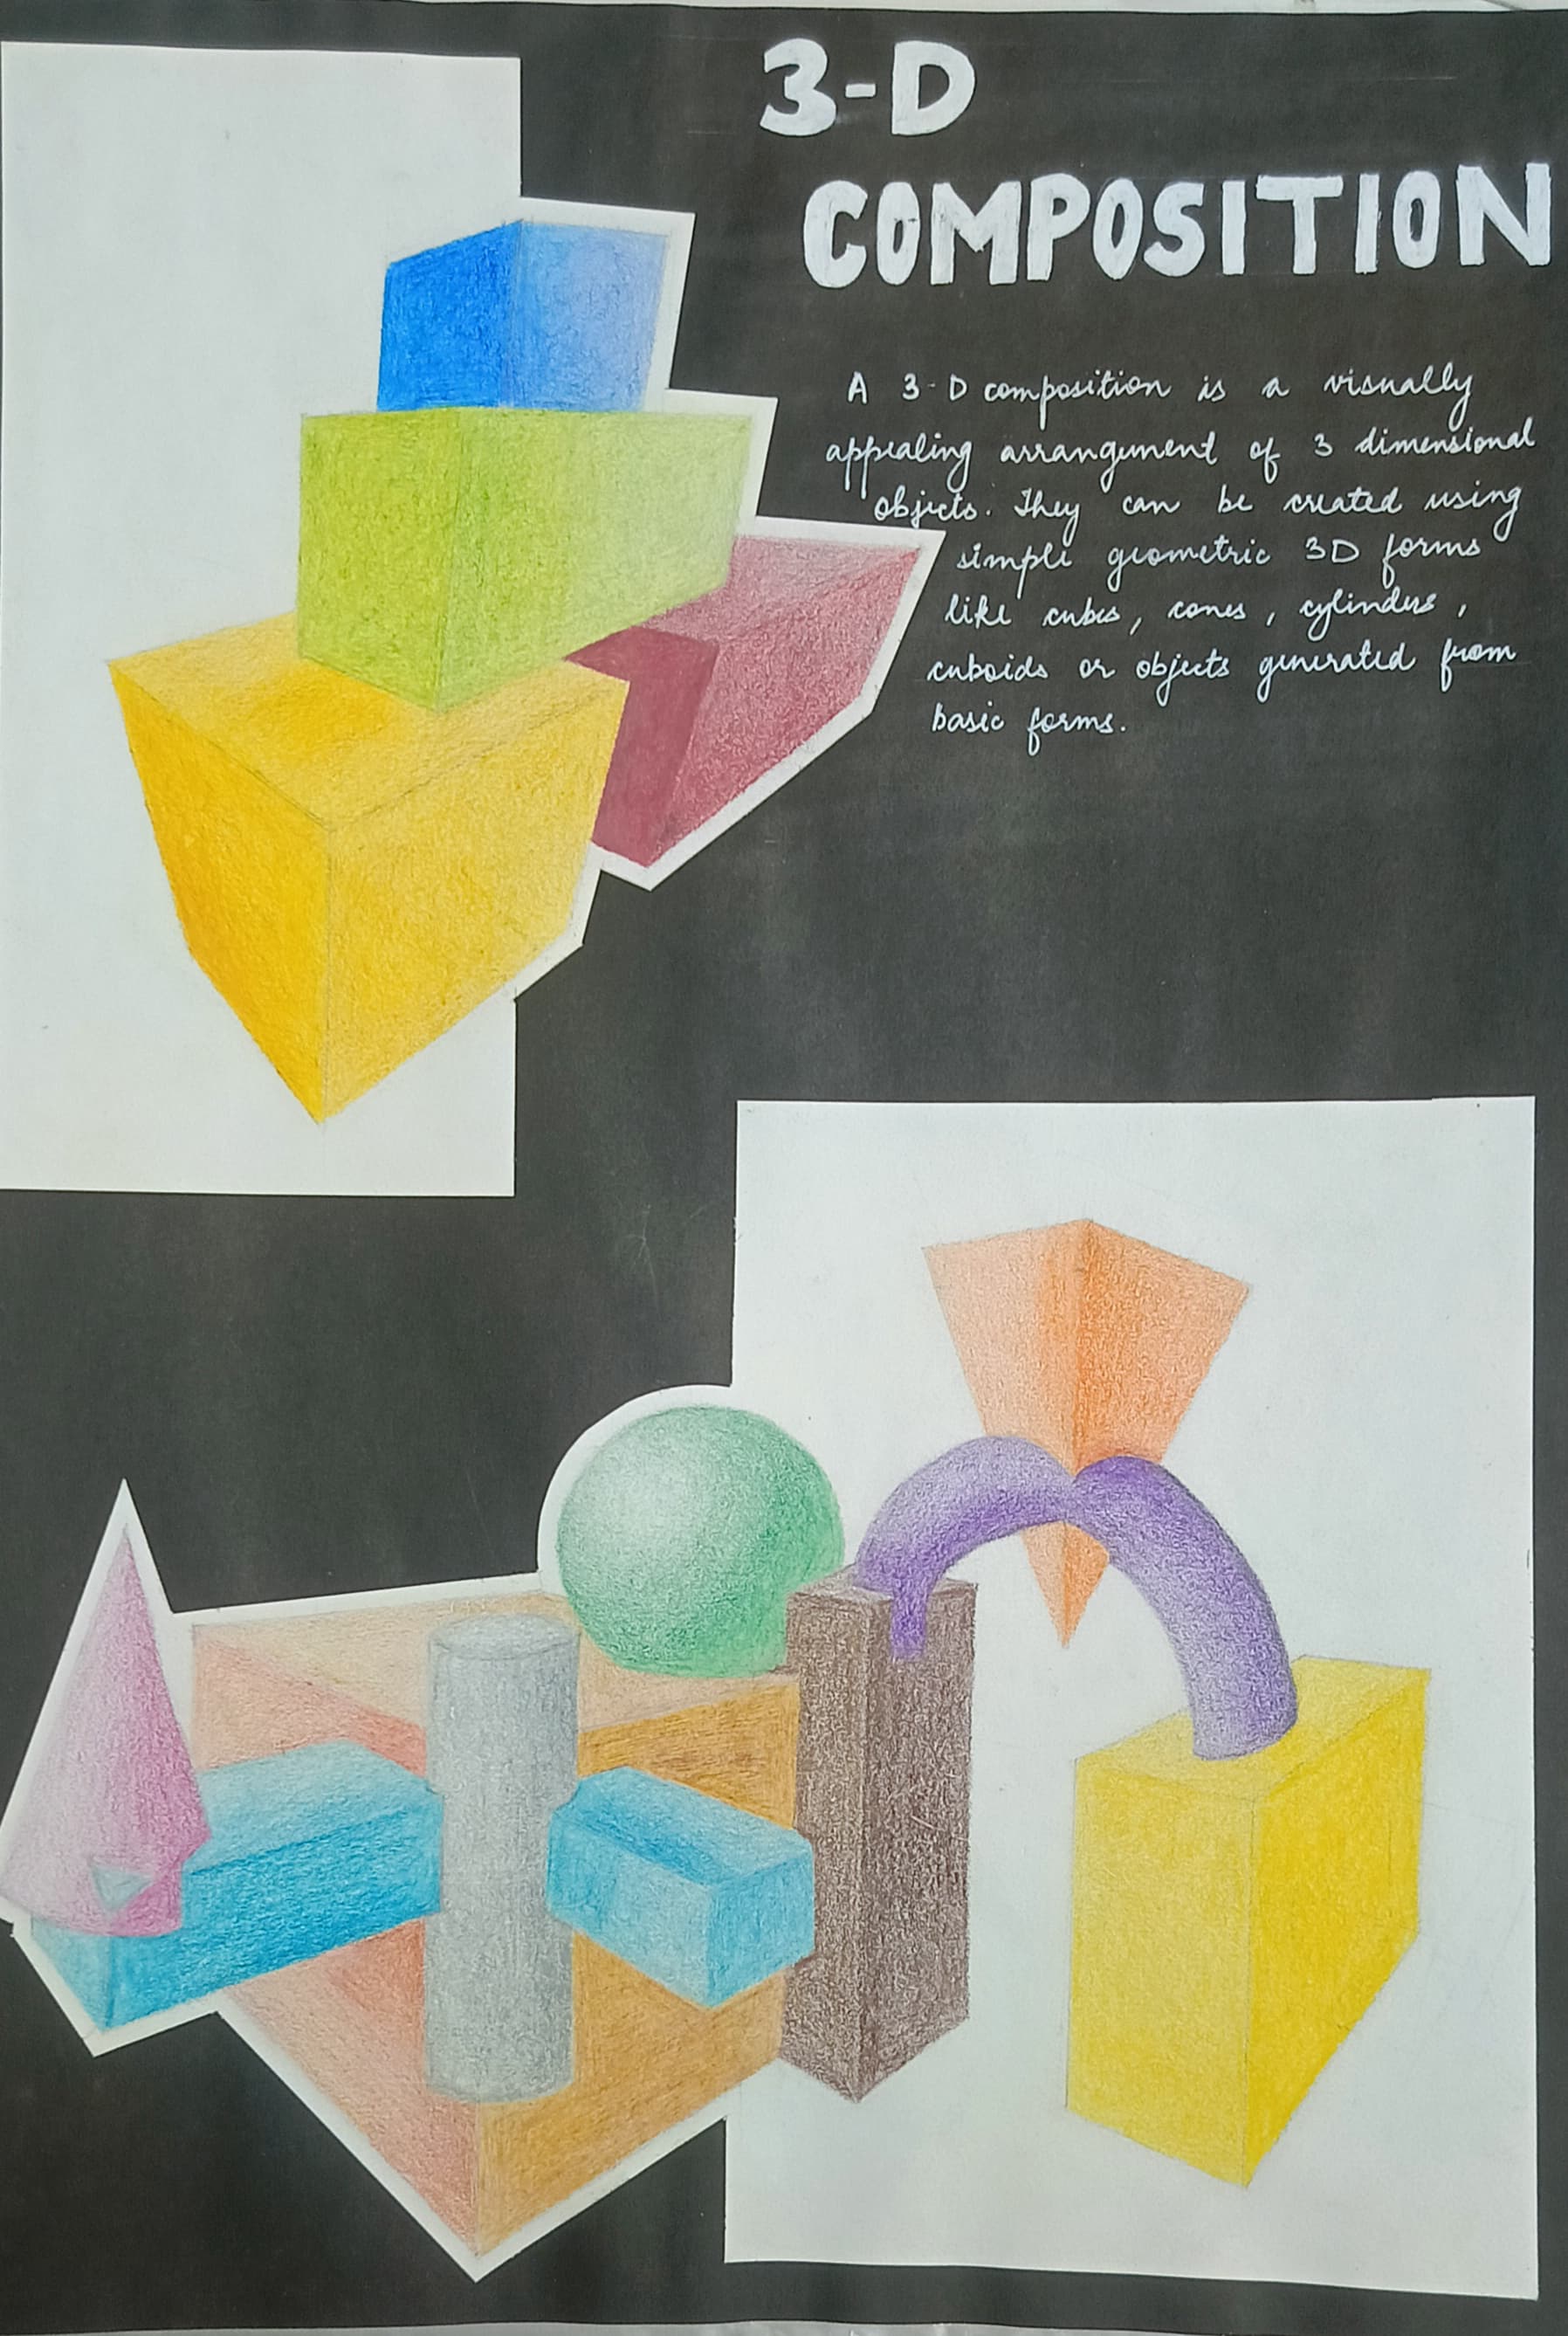 3-D
COMPOSITION
A 3-D composition is a visually
appealing arrangement of 3 dimensional
objects. They can be created using
simple geometric 3D forms
like cubes, cones, cylinders,
cuboids or objects generated from
basic forms.